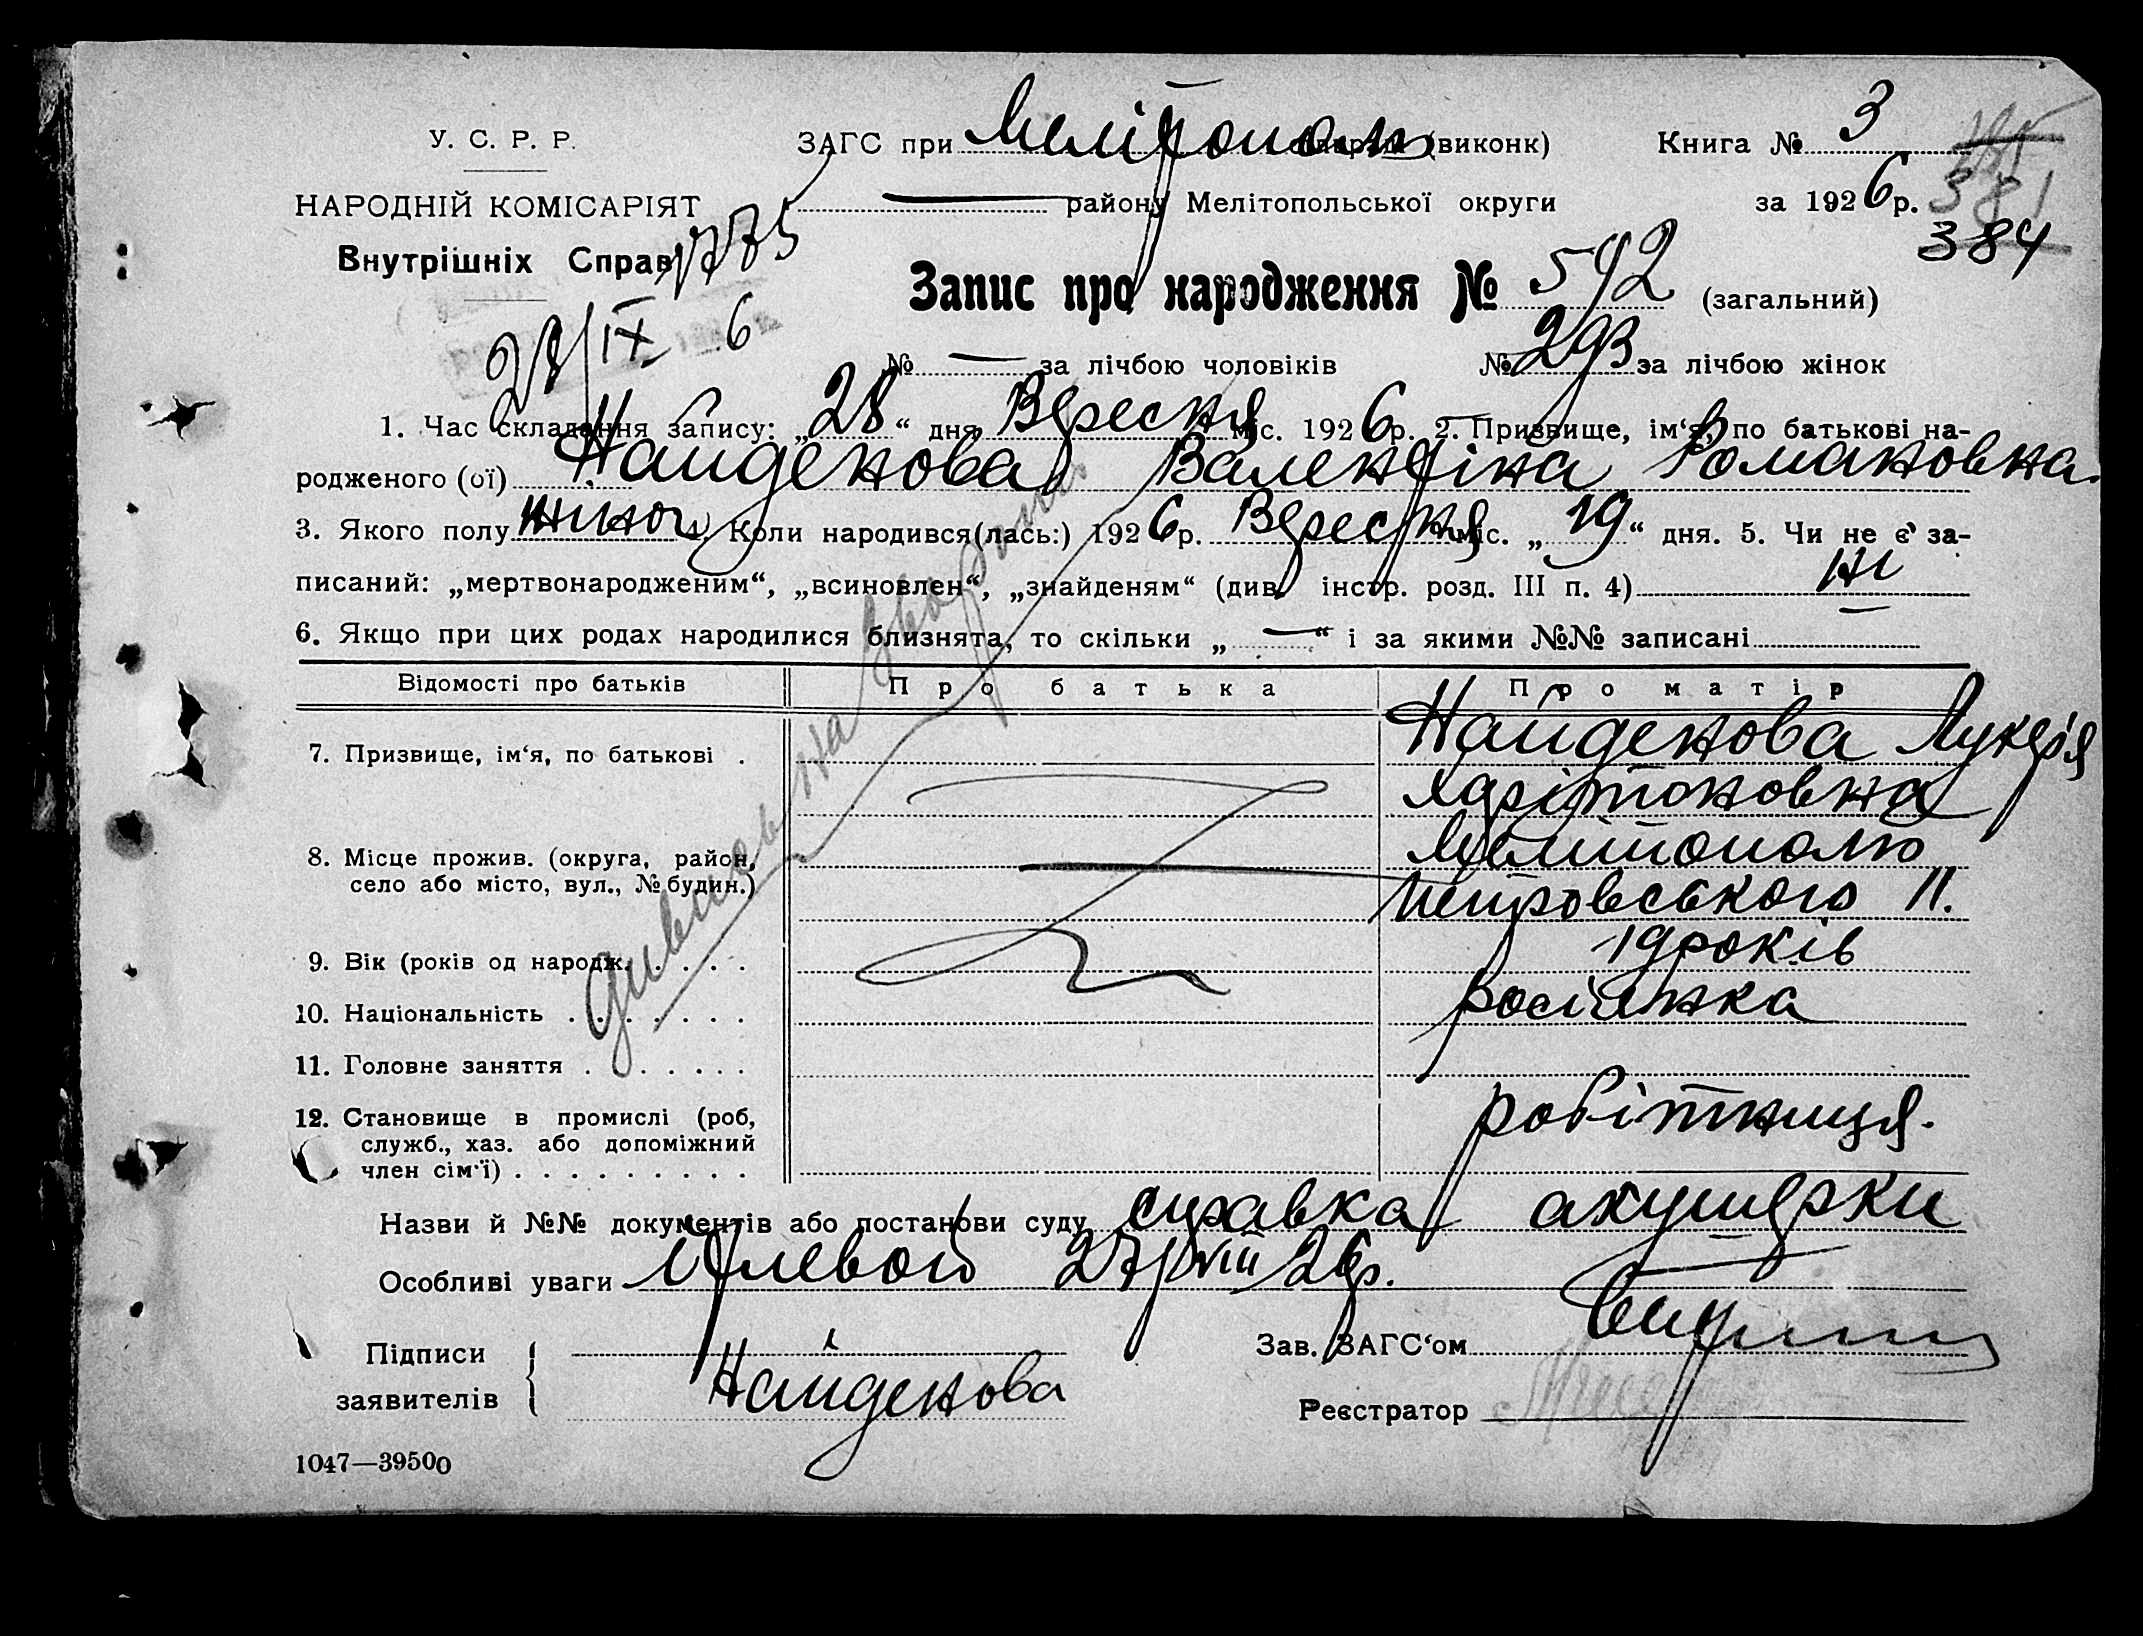 У. С. Р. Р. ЗАГС при Мелітополь (виконк) Книга № 3
НАРОДНІЙ КОМІСАРІЯТ району Мелітопольської округи за 1926 р. 381
Внутрішніх Справ 1775 384
Запис про народження № 592 (загальний)
28/IX 6
№ — за лічбою чоловіків № 293 за лічбою жінок
1. Час складання запису: „28“ дня Вересня міс. 1926 р. 2. Призвище, ім‘я, по батькові на-
родженого (ої) Найденова Валентіна Романовна.
3. Якого полу жіноч 4. Коли народився(лась:) 1926 р. Вересня міс. „19“ дня. 5. Чи не є за-
писаний: „мертвонародженим“, „всиновлен“, „знайденям“ (див. інстр. розд. III п. 4) ні
6. Якщо при цих родах народилися близнята, то скільки „ — “ і за якими №№ записані —
Відомості про батьків Про батька Про матір
7. Призвище, ім‘я, по батькові . Найденова Лукер'я
Харітоновна
8. Місце прожив. (округа, район, Мелітополь
село або місто, вул., № будин.) Петровського 11.
9. Вік (років од народж. . . . . 19 років
10. Національність . . . . . . . Росіянка
11. Головне заняття . . . . . . .
12. Становище в промислі (роб, робітниця.
служб., хаз. або допоміжний
член сім‘ї) . . . . . . . . .
дивись на звороті
Назви й №№ документів або постанови суду справка акушерки
Особливі уваги 27/VIII 26 р.
Підписи Зав. ЗАГС‘ом
заявителів Найденова Реєстратор
1047—39500